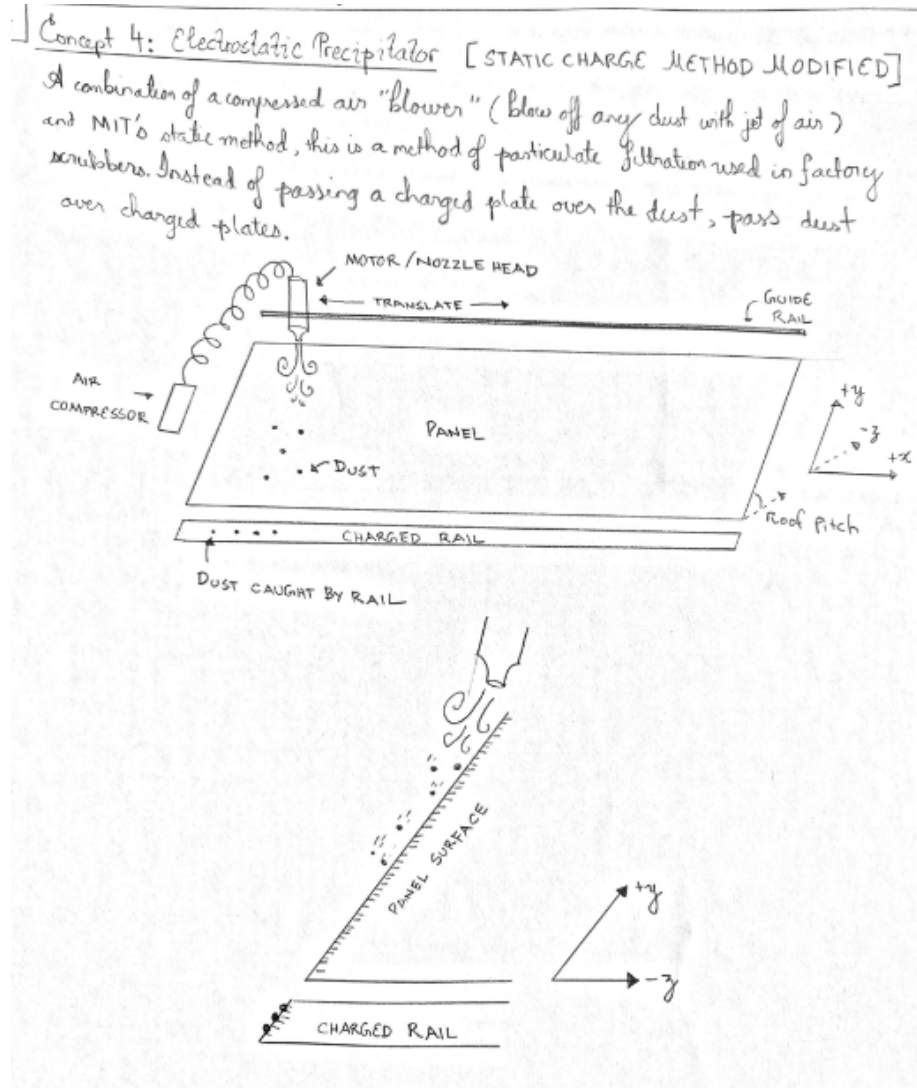 Concept 4: Electrostatic Precipitator [STATIC CHARGE METHOD MODIFIED]
A combination of a compressed air "blower" (blow off any dust with jet of air)
and MIT's static method, this is a method of particulate filtration used in factory
scrubbers. Instead of passing a charged plate over the dust, pass dust
over charged plates.
MOTOR/NOZZLE HEAD
TRANSLATE
GUIDE
RAIL
AIR
COMPRESSOR
PANEL
DUST
+y
-z
+x
Roof Pitch
CHARGED RAIL
DUST CAUGHT BY RAIL
PANEL SURFACE
+y
-z
CHARGED RAIL